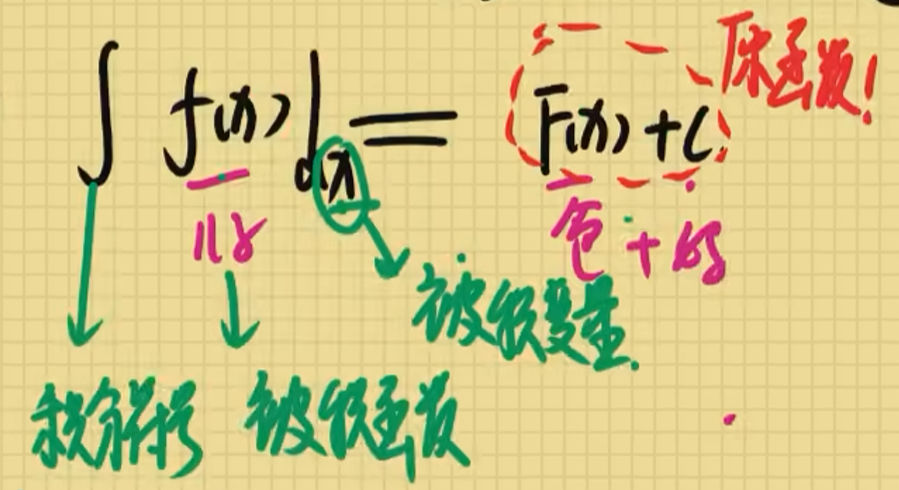 ∫ f(x) dx = F(x) + C
原函数!
被积变量.
积分符号 被积函数